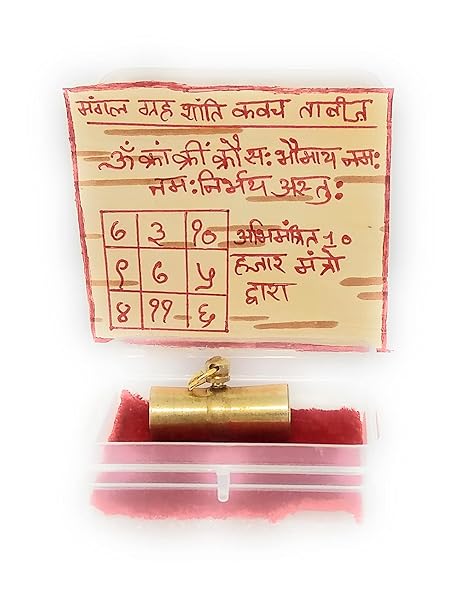 मंगल ग्रह शांति कवच ताबीज
ॐ क्रां क्रीं क्रौ स: भौमाय नम:
नम: निर्भय अस्तु:
७ ३ १०
९ ७ ५
४ ११ ६
अभिमंत्रित १०
हजार मंत्रो
द्वारा